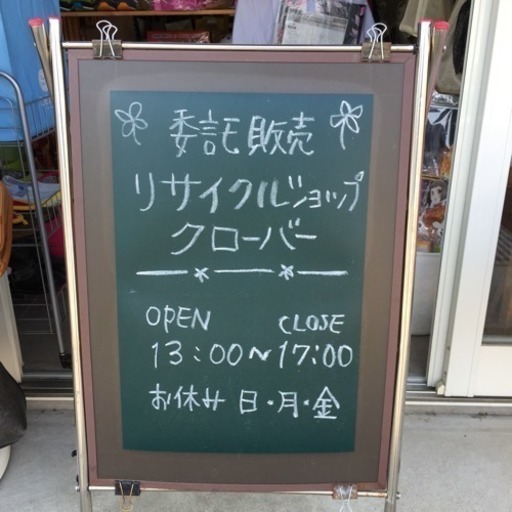 委託販売
リサイクルショップ
クローバー
OPEN CLOSE
13:00~17:00
お休み 日・月・金